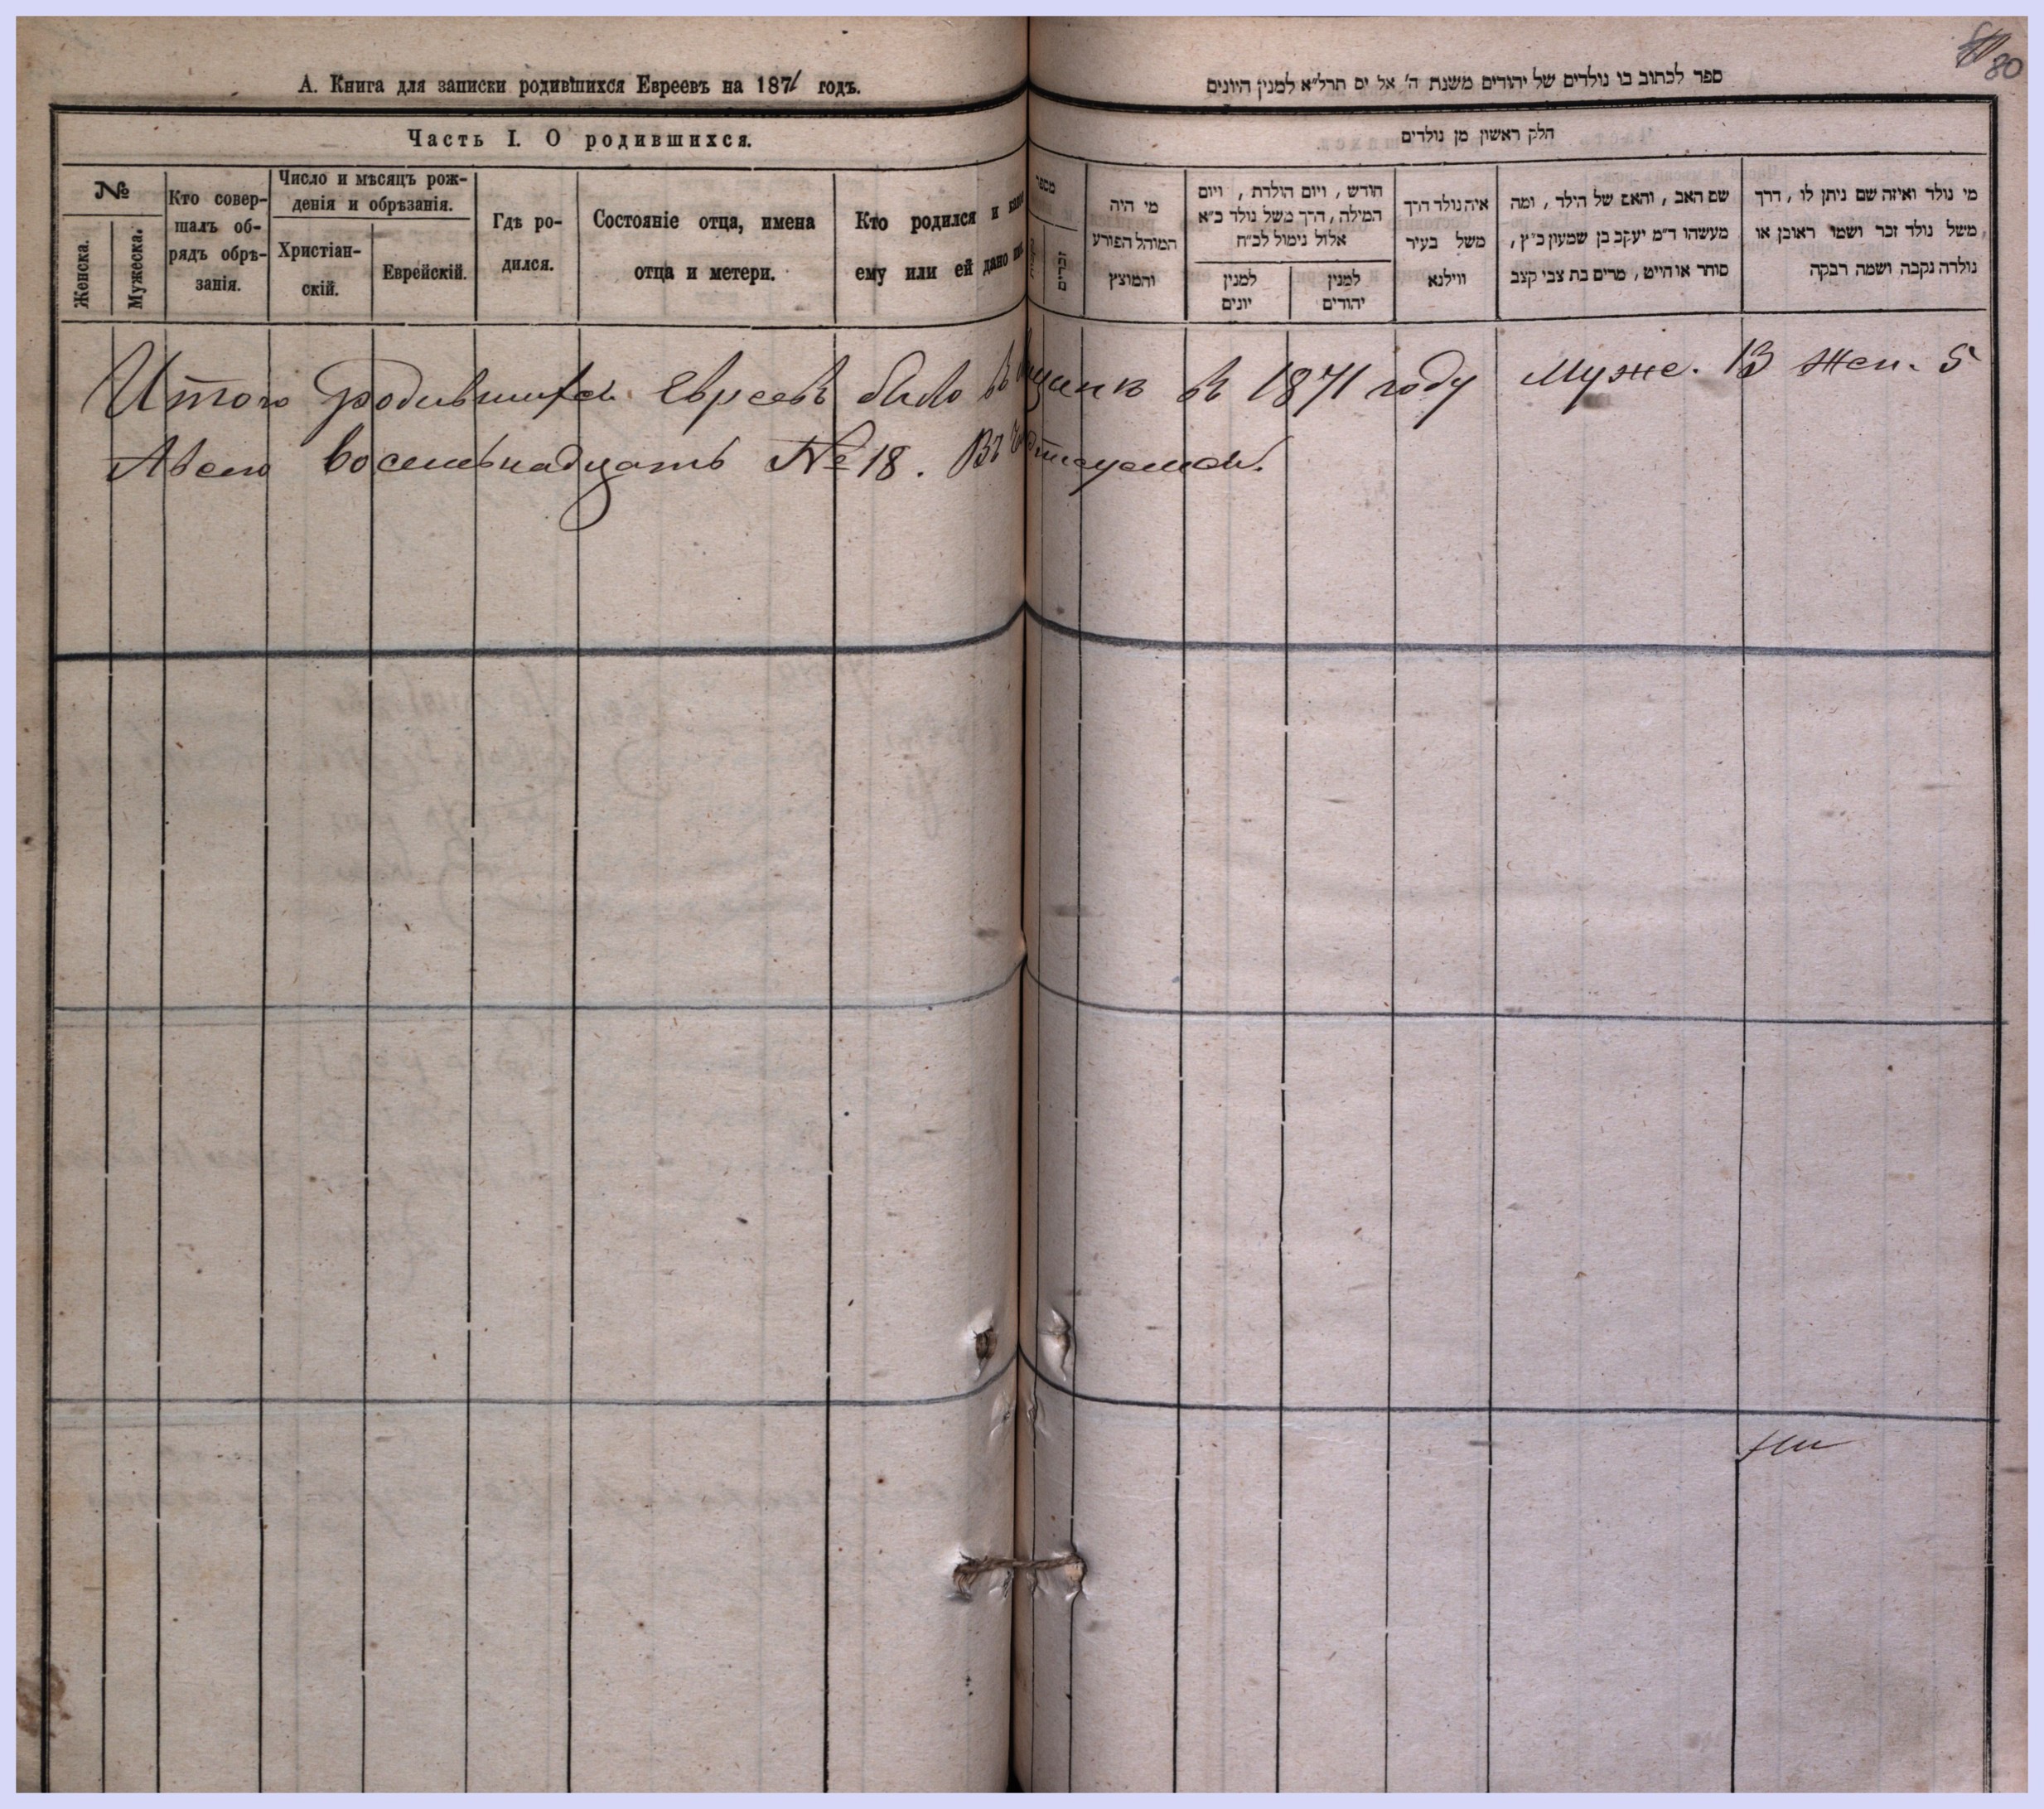 80
А. Книга для записки родившихся Евреевъ на 1871 годъ.
Часть I. О родившихся.
№
Женска.
Мужеска.
Кто совер-
шалъ об-
рядъ обрѣ-
занія.
Число и мѣсяцъ рож-
денія и обрѣзанія.
Христіан-
скій.
Еврейскій.
Гдѣ ро-
дился.
Состояніе отца, имена
отца и метери.
Кто родился и какое
ему или ей дано
ספר לכתוב בו נולדים של יהודים משנת ה' אל ים תרל"א למנין היונים
חלק ראשון מן נולדים
מספר
זכרים
מי היה
המוהל הפורע
והמוצץ
חודש, ויום הולדת, ויום
המילה, דרך משל נולד כ"א
אלול נימול לכ"ח
למנין
יונים
למנין
יהודים
איה נולד דרך
משל בעיר
ווילנא
שם האב, והאם של הילד, ומה
מעשהו ד"מ יעקב בן שמעון כ"ץ,
סוחר או הייט, מרים בת צבי קצב
מי נולד ואיזה שם ניתן לו, דרך
משל נולד זכר ושמו ראובן או
נולדה נקבה ושמה רבקה
Итого родившихся Евреевъ было въ въ 1871 году Муже. 13 Жен. 5
А всего восемьнадцать № 18. Въ